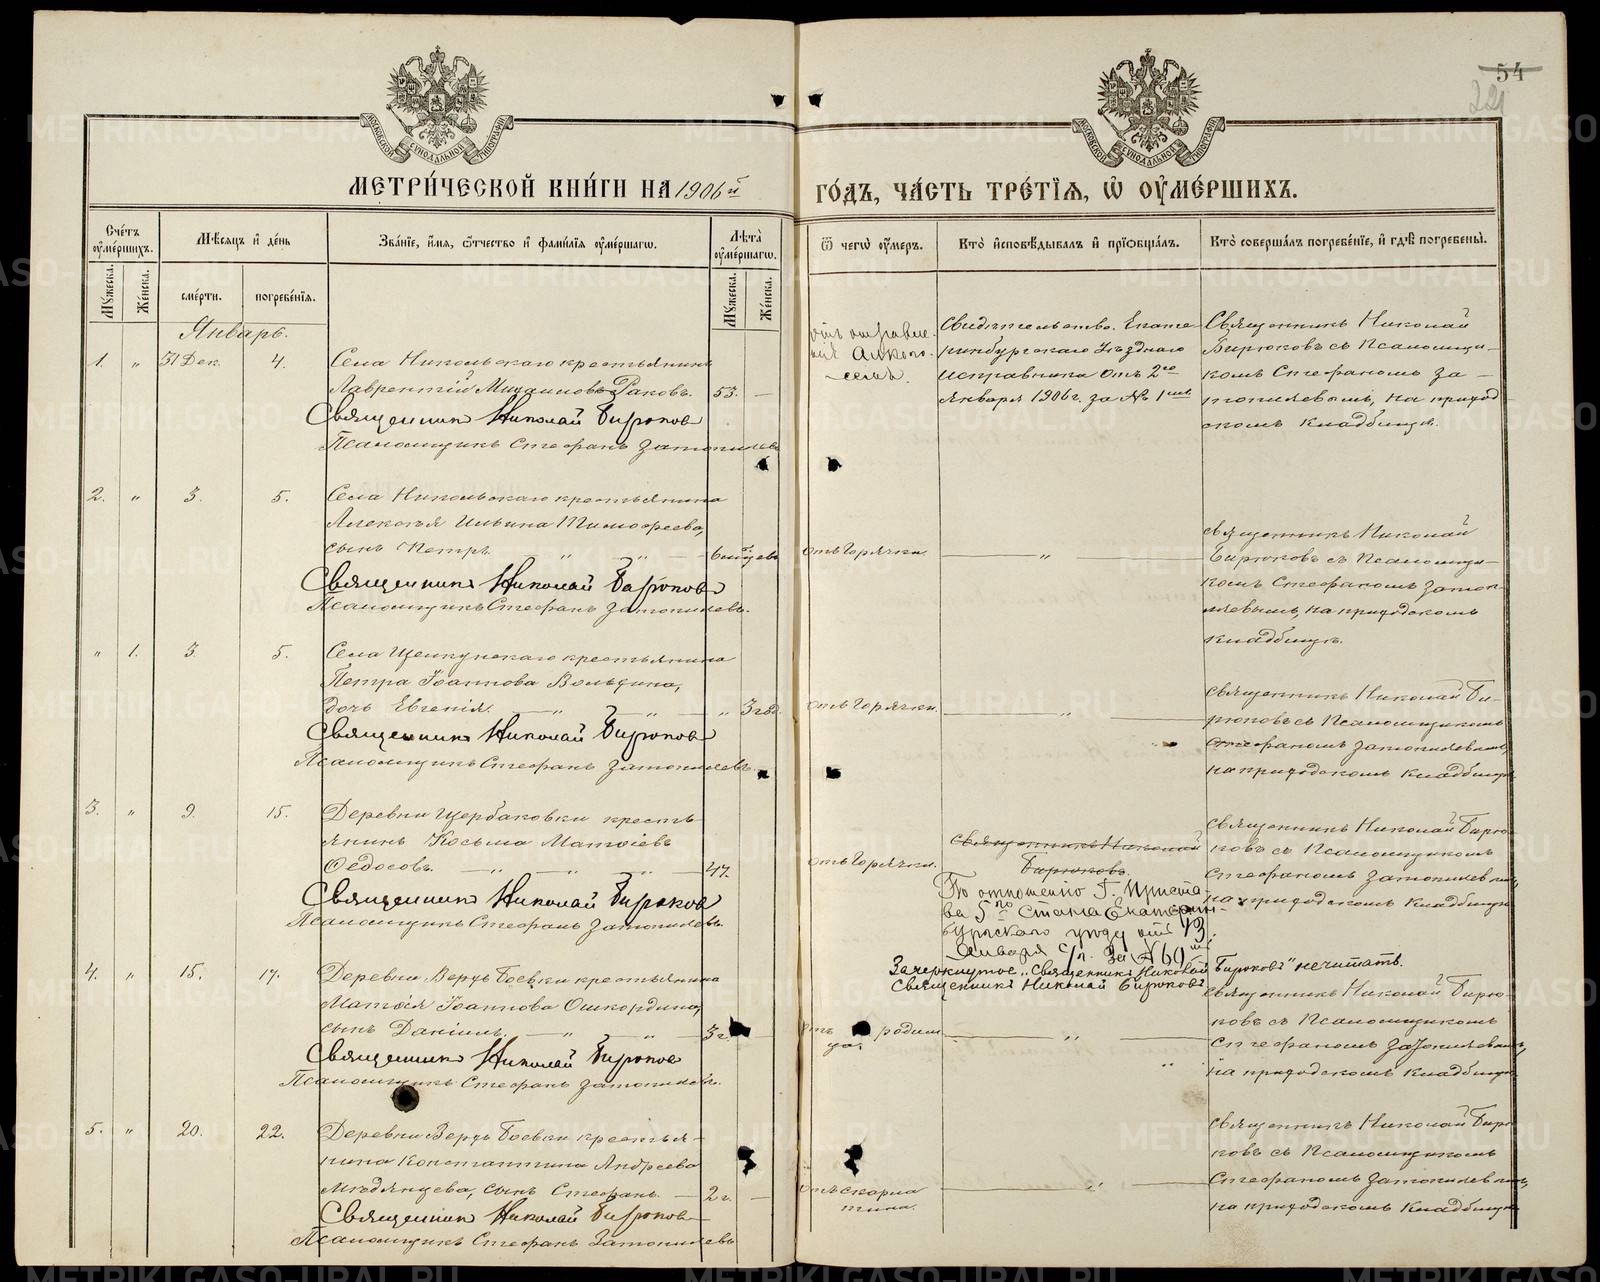 54
МЕТРИ́ЧЕСКОЙ КНИ́ГИ НА 1906й
ГО́ДЪ, ЧА́СТЬ ТРЕ́ТІѦ, Ѡ҆ ОУ҆МЕ́РШИХЪ.
Сче́тъ оу҆ме́ршихъ.
Мꙋ́жеска.
Же́нска.
Мѣ́сѧцъ и҆ де́нь
сме́рти.
погребе́нїѧ.
Зва́нїе, и҆́мѧ, ѻ҆́тчество и҆ фами́лїѧ оу҆ме́ршагѡ.
Лѣ̑та оу҆ме́ршагѡ.
Мꙋ́жеска.
Же́нска.
Ѿ чегѡ̀ оу҆́меръ.
Кто̀ и҆сповѣ́дывалъ и҆ прїѡбща́лъ.
Кто̀ соверша́лъ погребе́нїе, и҆ гдѣ̀ погребены̀.
Январь.
1. „ 31 Дек. 4.
Села Никольскаго крестьянинъ
Лаврентій Михаиловъ Раковъ. 53. —
Священникъ Николай Бирюковъ
Псаломщикъ Стефанъ Затопляевъ
отъ отравле-
нія Алкого-
лемъ.
Свидѣтельство Екате-
ринбургскаго Уѣзднаго
Исправника отъ 2го
Января 1906 г. за № 1мъ
Священникъ Николай
Бирюковъ съ Псаломщи-
комъ Стефаномъ За-
топляевымъ, на приход-
скомъ кладбищѣ.
2. „ 3. 5.
Села Никольскаго крестьянина
Алексѣя Ильина Тимофеева,
сынъ Петръ. — „ — „ — 6 мѣсяцевъ
Священникъ Николай Бирюковъ
Псаломщикъ Стефанъ Затопляевъ.
отъ Горячки.
— „ —
Священникъ Николай
Бирюковъ съ Псаломщи-
комъ Стефаномъ Затоп-
ляевымъ, на приходскомъ
кладбищѣ.
„ 1. 3 5.
Села Щелкунскаго крестьянина
Петра Іоаннова
дочь Евгенія. — „ — „ — „ 3 год.
Священникъ Николай Бирюковъ
Псаломщикъ Стефанъ Затопляевъ.
отъ Горячки.
— „ —
Священникъ Николай Би-
рюковъ съ Псаломщикомъ
Стефаномъ Затопляевымъ,
на приходскомъ кладбищѣ
3. „ 9. 15.
Деревни Щербаковки кресть-
янинъ Косьма Матѳіевъ
Ѳедосовъ. — „ — „ — „ — 47.
Священникъ Николай Бирюковъ
Псаломщикъ Стефанъ Затопляевъ.
отъ Горячки.
Священникъ Николай
Бирюковъ.
По отношенію Г. Приста-
ва 5го Стана Екатерин-
бургскаго уѣзда отъ 13
Января с/г. За № 60мъ
Зачеркнутое „Священникъ Николай Бирюковъ" нечитать.
Священникъ Николай Бирюковъ
Священникъ Николай Бирю-
ковъ съ Псаломщикомъ
Стефаномъ Затопляевымъ,
на приходскомъ кладбищѣ
4. „ 15. 17.
Деревни Верхъ Боевки крестьянина
Матѳія Іоаннова
сынъ Даніилъ. — „ — „ — 3 г. —
Священникъ Николай Бирюковъ
Псаломщикъ Стефанъ Затопляевъ.
отъ родим-
ца.
— „ —
Священникъ Николай Бирю-
ковъ съ Псаломщикомъ
Стефаномъ Затопляевымъ,
на приходскомъ кладбищѣ
5. „ 20. 22.
Деревни Верхъ Боевки крестья-
нина Константина Андреева
Медвянцева, сынъ Стефанъ. — 2 г. —
Священникъ Николай Бирюковъ
Псаломщикъ Стефанъ Затопляевъ
отъ скарла-
тина.
— „ —
Священникъ Николай Бирю-
ковъ съ Псаломщикомъ
Стефаномъ Затопляевымъ,
на приходскомъ кладбищѣ
METRIKI.GASO-URAL.RU